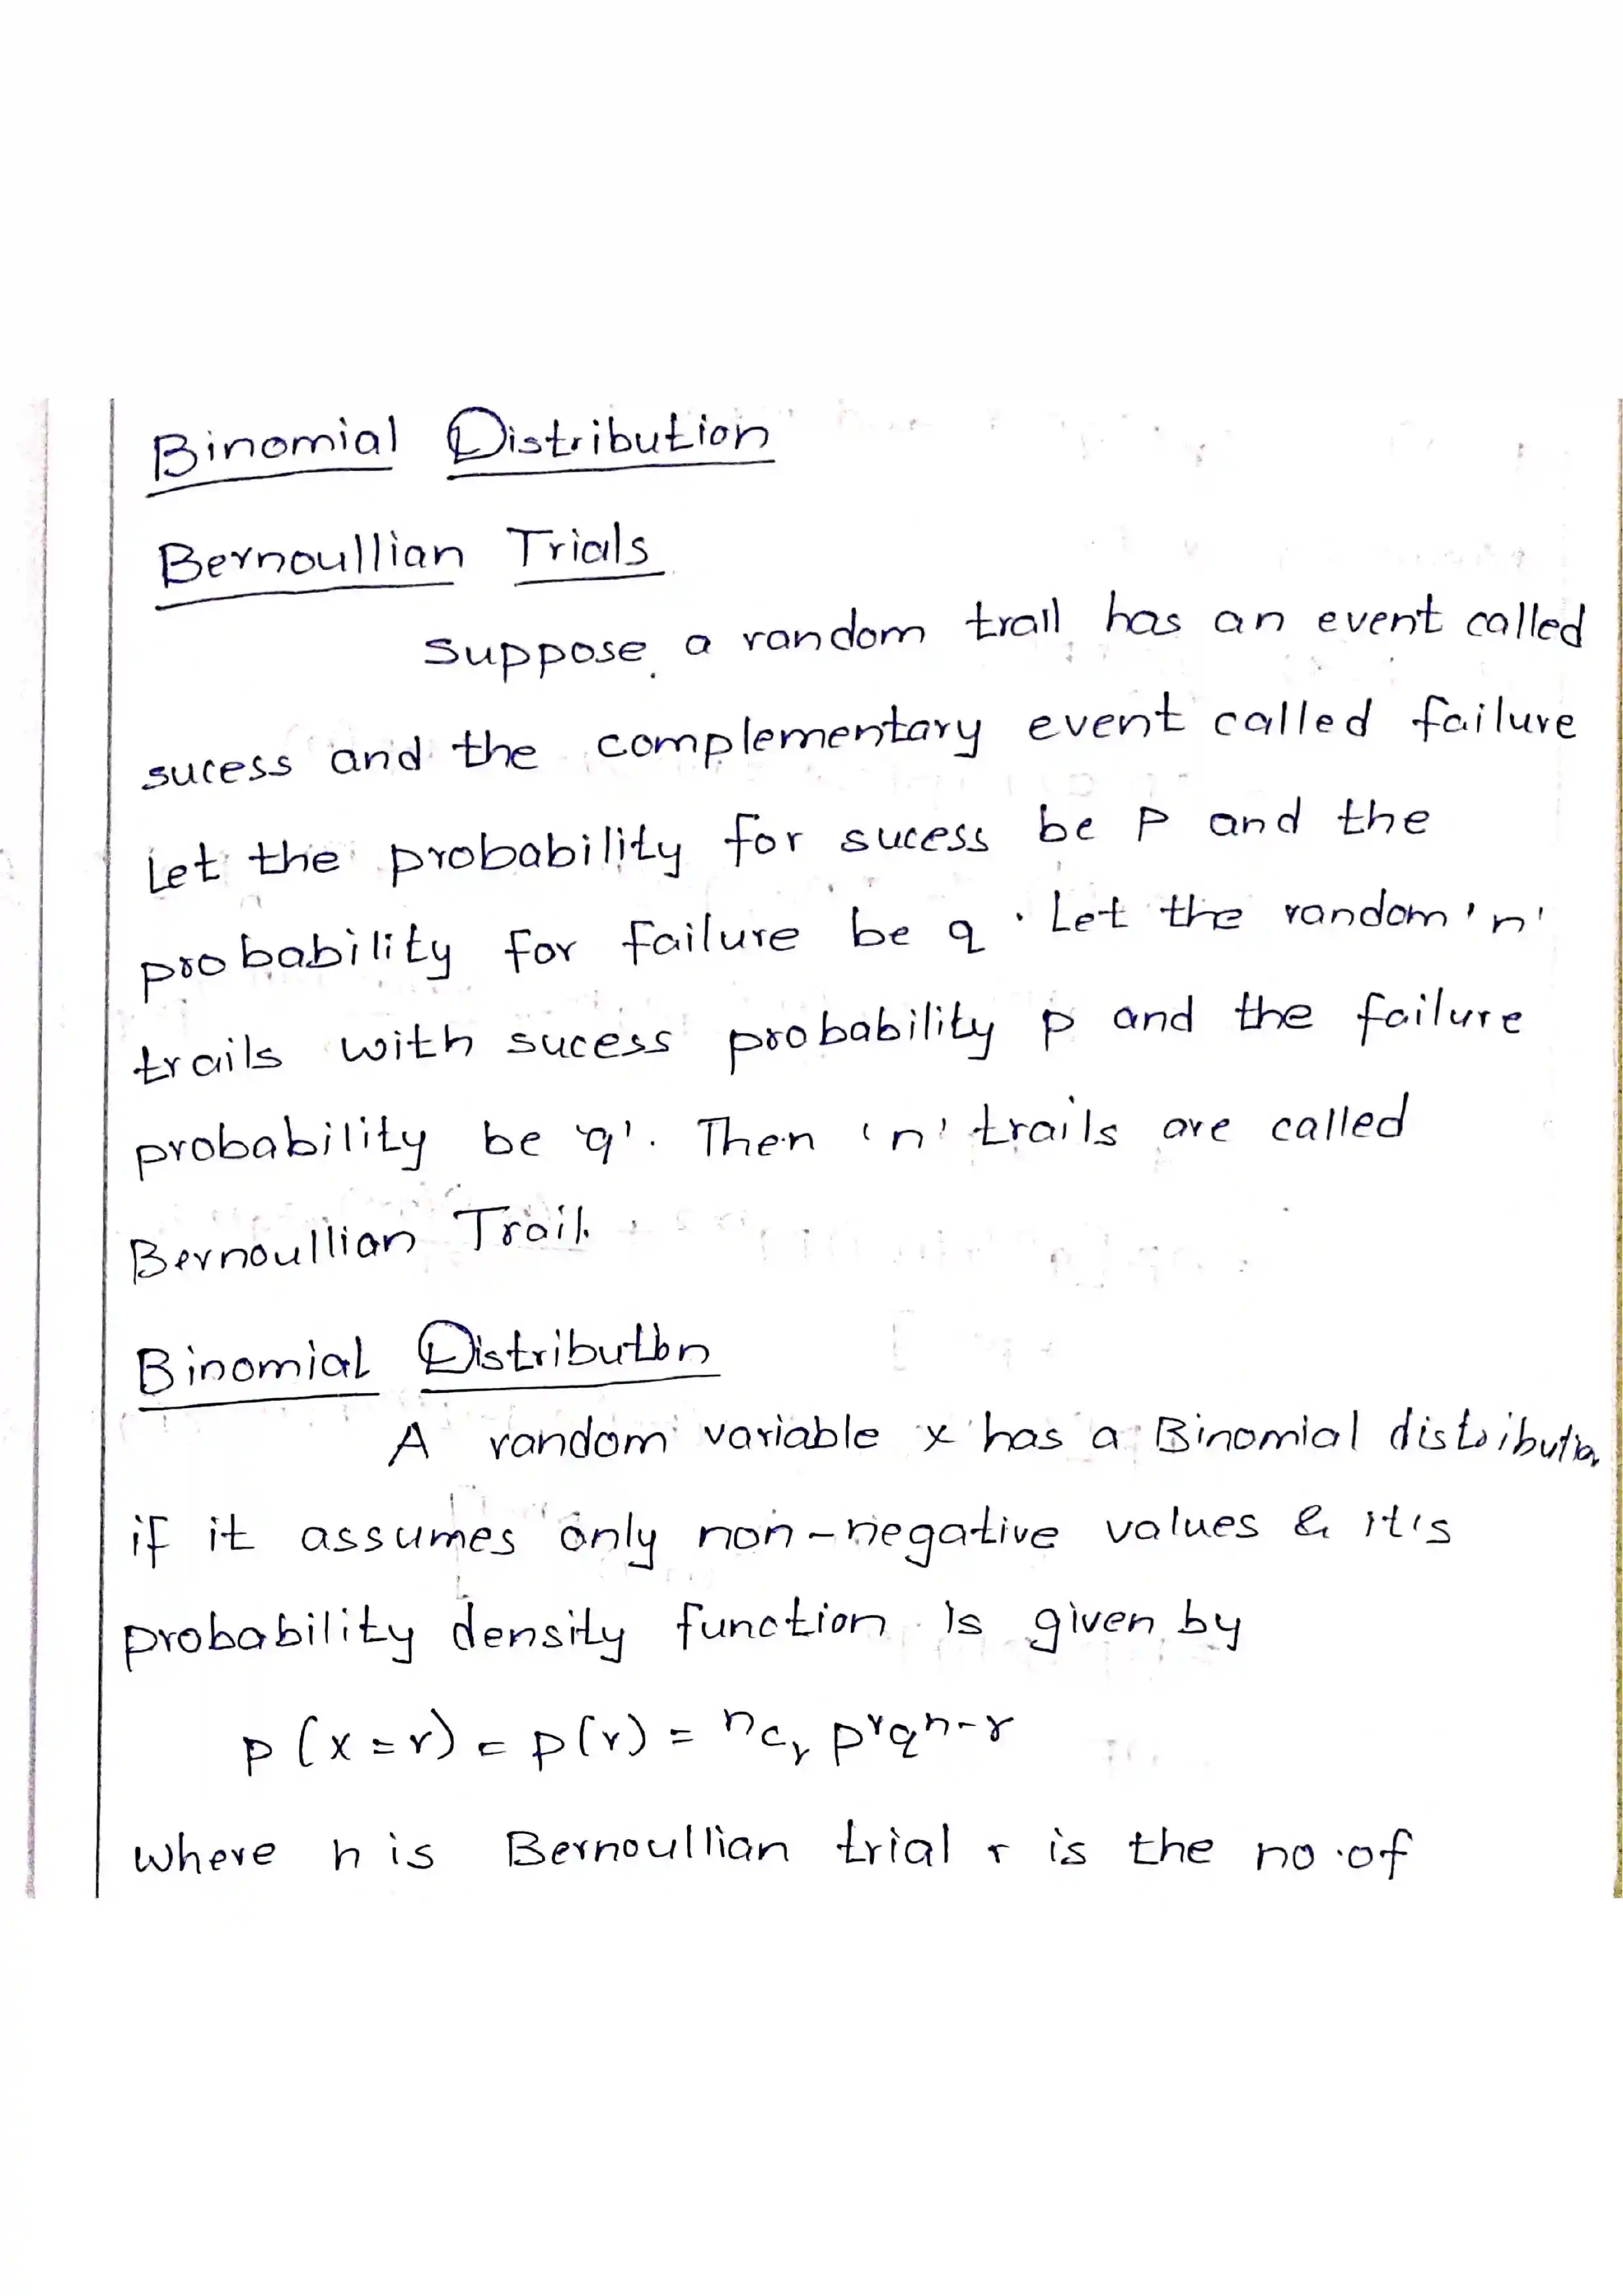 Binomial Distribution
Bernoullian Trials
Suppose a random trail has an event called
sucess and the complementary event called failure
Let the probability for sucess be P and the
probability for failure be q. Let the random 'n'
trails with sucess probability p and the failure
probability be 'q'. Then 'n' trails are called
Bernoullian Trail.
Binomial Distribution
A random variable x has a Binomial distribution
if it assumes only non-negative values & it's
probability density function is given by
p(x=r) = p(r) = ⁿcᵣ pʳqⁿ⁻ʳ
where n is Bernoullian trial r is the no.of